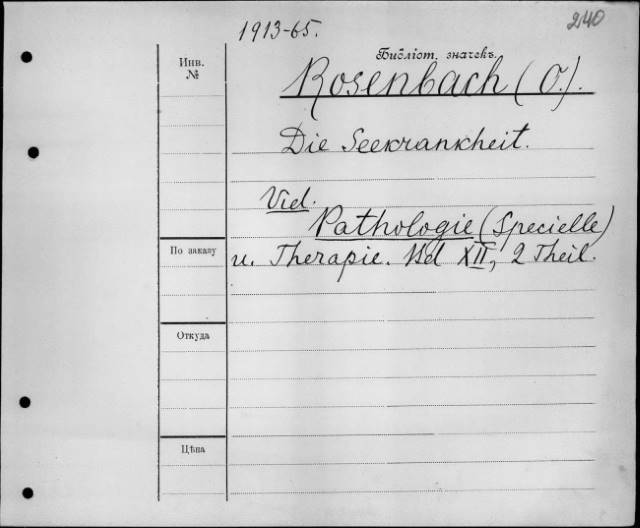 240
1913-65.
Библіот. значекъ.
Инв.
№
Rosenbach (O.).
Die Seekrankheit.
Vid.
Pathologie (Specielle)
По заказу
u. Therapie. Bd XII, 2 Theil.
Откуда
Цѣна